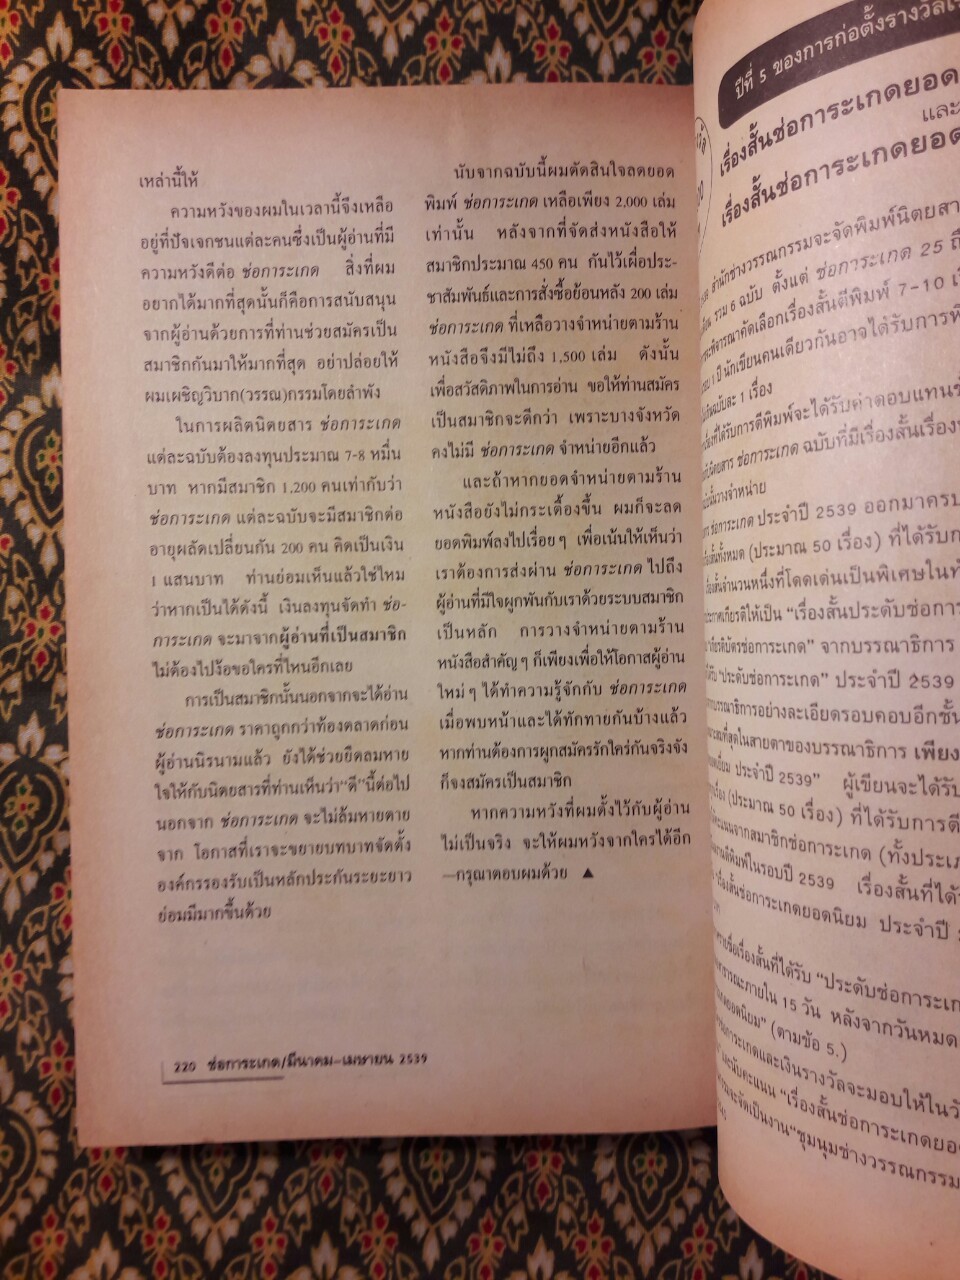 เหล่านี้ให้
ความหวังของผมในเวลานี้จึงเหลือ
อยู่ที่ปัจเจกชนแต่ละคนซึ่งเป็นผู้อ่านที่มี
ความหวังดีต่อ ช่อการะเกด สิ่งที่ผม
อยากได้มากที่สุดนั้นก็คือการสนับสนุน
จากผู้อ่านด้วยการที่ท่านช่วยสมัครเป็น
สมาชิกกันมาให้มากที่สุด อย่าปล่อยให้
ผมเผชิญวิบาก(วรรณ)กรรมโดยลำพัง
ในการผลิตนิตยสาร ช่อการะเกด
แต่ละฉบับต้องลงทุนประมาณ 7-8 หมื่น
บาท หากมีสมาชิก 1,200 คนเท่ากับว่า
ช่อการะเกด แต่ละฉบับจะมีสมาชิกต่อ
อายุผลัดเปลี่ยนกัน 200 คน คิดเป็นเงิน
1 แสนบาท ท่านย่อมเห็นแล้วใช่ไหม
ว่าหากเป็นได้ดังนี้ เงินลงทุนจัดทำ ช่อ-
การะเกด จะมาจากผู้อ่านที่เป็นสมาชิก
ไม่ต้องไปง้อขอใครที่ไหนอีกเลย
การเป็นสมาชิกนั้นนอกจากจะได้อ่าน
ช่อการะเกด ราคาถูกกว่าท้องตลาดก่อน
ผู้อ่านนิรนามแล้ว ยังได้ช่วยยืดลมหาย
ใจให้กับนิตยสารที่ท่านเห็นว่า“ดี”นี้ต่อไป
นอกจาก ช่อการะเกด จะไม่ล้มหายตาย
จาก โอกาสที่เราจะขยายบทบาทจัดตั้ง
องค์กรรองรับเป็นหลักประกันระยะยาว
ย่อมมีมากขึ้นด้วย
นับจากฉบับนี้ผมตัดสินใจลดยอด
พิมพ์ ช่อการะเกด เหลือเพียง 2,000 เล่ม
เท่านั้น หลังจากที่จัดส่งหนังสือให้
สมาชิกประมาณ 450 คน กันไว้เผื่อประ-
ชาสัมพันธ์และการสั่งซื้อย้อนหลัง 200 เล่ม
ช่อการะเกด ที่เหลือวางจำหน่ายตามร้าน
หนังสือจึงมีไม่ถึง 1,500 เล่ม ดังนั้น
เพื่อสวัสดิภาพในการอ่าน ขอให้ท่านสมัคร
เป็นสมาชิกจะดีกว่า เพราะบางจังหวัด
คงไม่มี ช่อการะเกด จำหน่ายอีกแล้ว
และถ้าหากยอดจำหน่ายตามร้าน
หนังสือยังไม่กระเตื้องขึ้น ผมก็จะลด
ยอดพิมพ์ลงไปเรื่อยๆ เพื่อเน้นให้เห็นว่า
เราต้องการส่งผ่าน ช่อการะเกด ไปถึง
ผู้อ่านที่มีใจผูกพันกับเราด้วยระบบสมาชิก
เป็นหลัก การวางจำหน่ายตามร้าน
หนังสือสำคัญๆ ก็เพียงเพื่อให้โอกาสผู้อ่าน
ใหม่ๆ ได้ทำความรู้จักกับ ช่อการะเกด
เมื่อพบหน้าและได้ทักทายกันบ้างแล้ว
หากท่านต้องการผูกสมัครรักใคร่กันจริงจัง
ก็จงสมัครเป็นสมาชิก
หากความหวังที่ผมตั้งไว้กับผู้อ่าน
ไม่เป็นจริง จะให้ผมหวังจากใครได้อีก
—กรุณาตอบผมด้วย ▲
220 ช่อการะเกด/มีนาคม-เมษายน 2539
ปีที่ 5 ของการก่อตั้งรางวัล
เรื่องสั้นช่อการะเกดยอด
และ
เรื่องสั้นช่อการะเกดยอด
สำนักช่างวรรณกรรมจะจัดพิมพ์นิตยสาร
รวม 6 ฉบับ ตั้งแต่ ช่อการะเกด 25
พิจารณาคัดเลือกเรื่องสั้นตีพิมพ์ 7-10
1 ปี นักเขียนคนเดียวกันอาจได้รับการ
ฉบับละ 1 เรื่อง
ที่ได้รับการตีพิมพ์จะได้รับค่าตอบแทน
ช่อการะเกด ฉบับที่มีเรื่องสั้นเรื่อง
วางจำหน่าย
ช่อการะเกด ประจำปี 2539 ออกมาครบ
ทั้งหมด (ประมาณ 50 เรื่อง) ที่ได้รับ
จำนวนหนึ่งที่โดดเด่นเป็นพิเศษใน
เกียรติให้เป็น “เรื่องสั้นประดับช่อการะ
ช่อการะเกด” จากบรรณาธิการ
“ประดับช่อการะเกด” ประจำปี 2539
บรรณาธิการอย่างละเอียดรอบคอบอีกชั้น
ที่สุดในสายตาของบรรณาธิการ เพียง
ประจำปี 2539” ผู้เขียนจะได้รับ
(ประมาณ 50 เรื่อง) ที่ได้รับการ
จากสมาชิกช่อการะเกด (ทั้งประเภ
ตีพิมพ์ในรอบปี 2539 เรื่องสั้นที่ได้
เรื่องสั้นช่อการะเกดยอดนิยม ประจำปี
เรื่องสั้นที่ได้รับ “ประดับช่อการะเก
ภายใน 15 วัน หลังจากวันหมด
ยอดนิยม” (ตามข้อ 5.)
ช่อการะเกดและเงินรางวัลจะมอบให้ใน
และนับคะแนน “เรื่องสั้นช่อการะเกดยอด
จะจัดเป็นงาน“ชุมนุมช่างวรรณกรรม